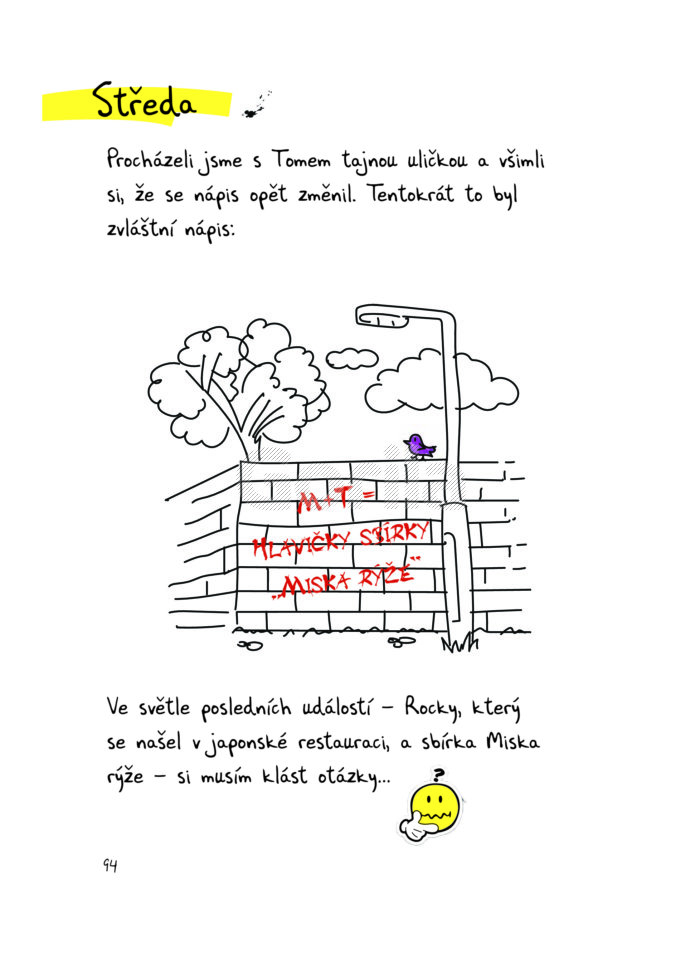 Středa
Procházeli jsme s Tomem tajnou uličkou a všimli
si, že se nápis opět změnil. Tentokrát to byl
zvláštní nápis:
M+T =
HLAVIČKY STÍRKY
„MISKA RÝŽE“
Ve světle posledních událostí – Rocky, který
se našel v japonské restauraci, a sbírka Miska
rýže – si musím klást otázky...
?
94